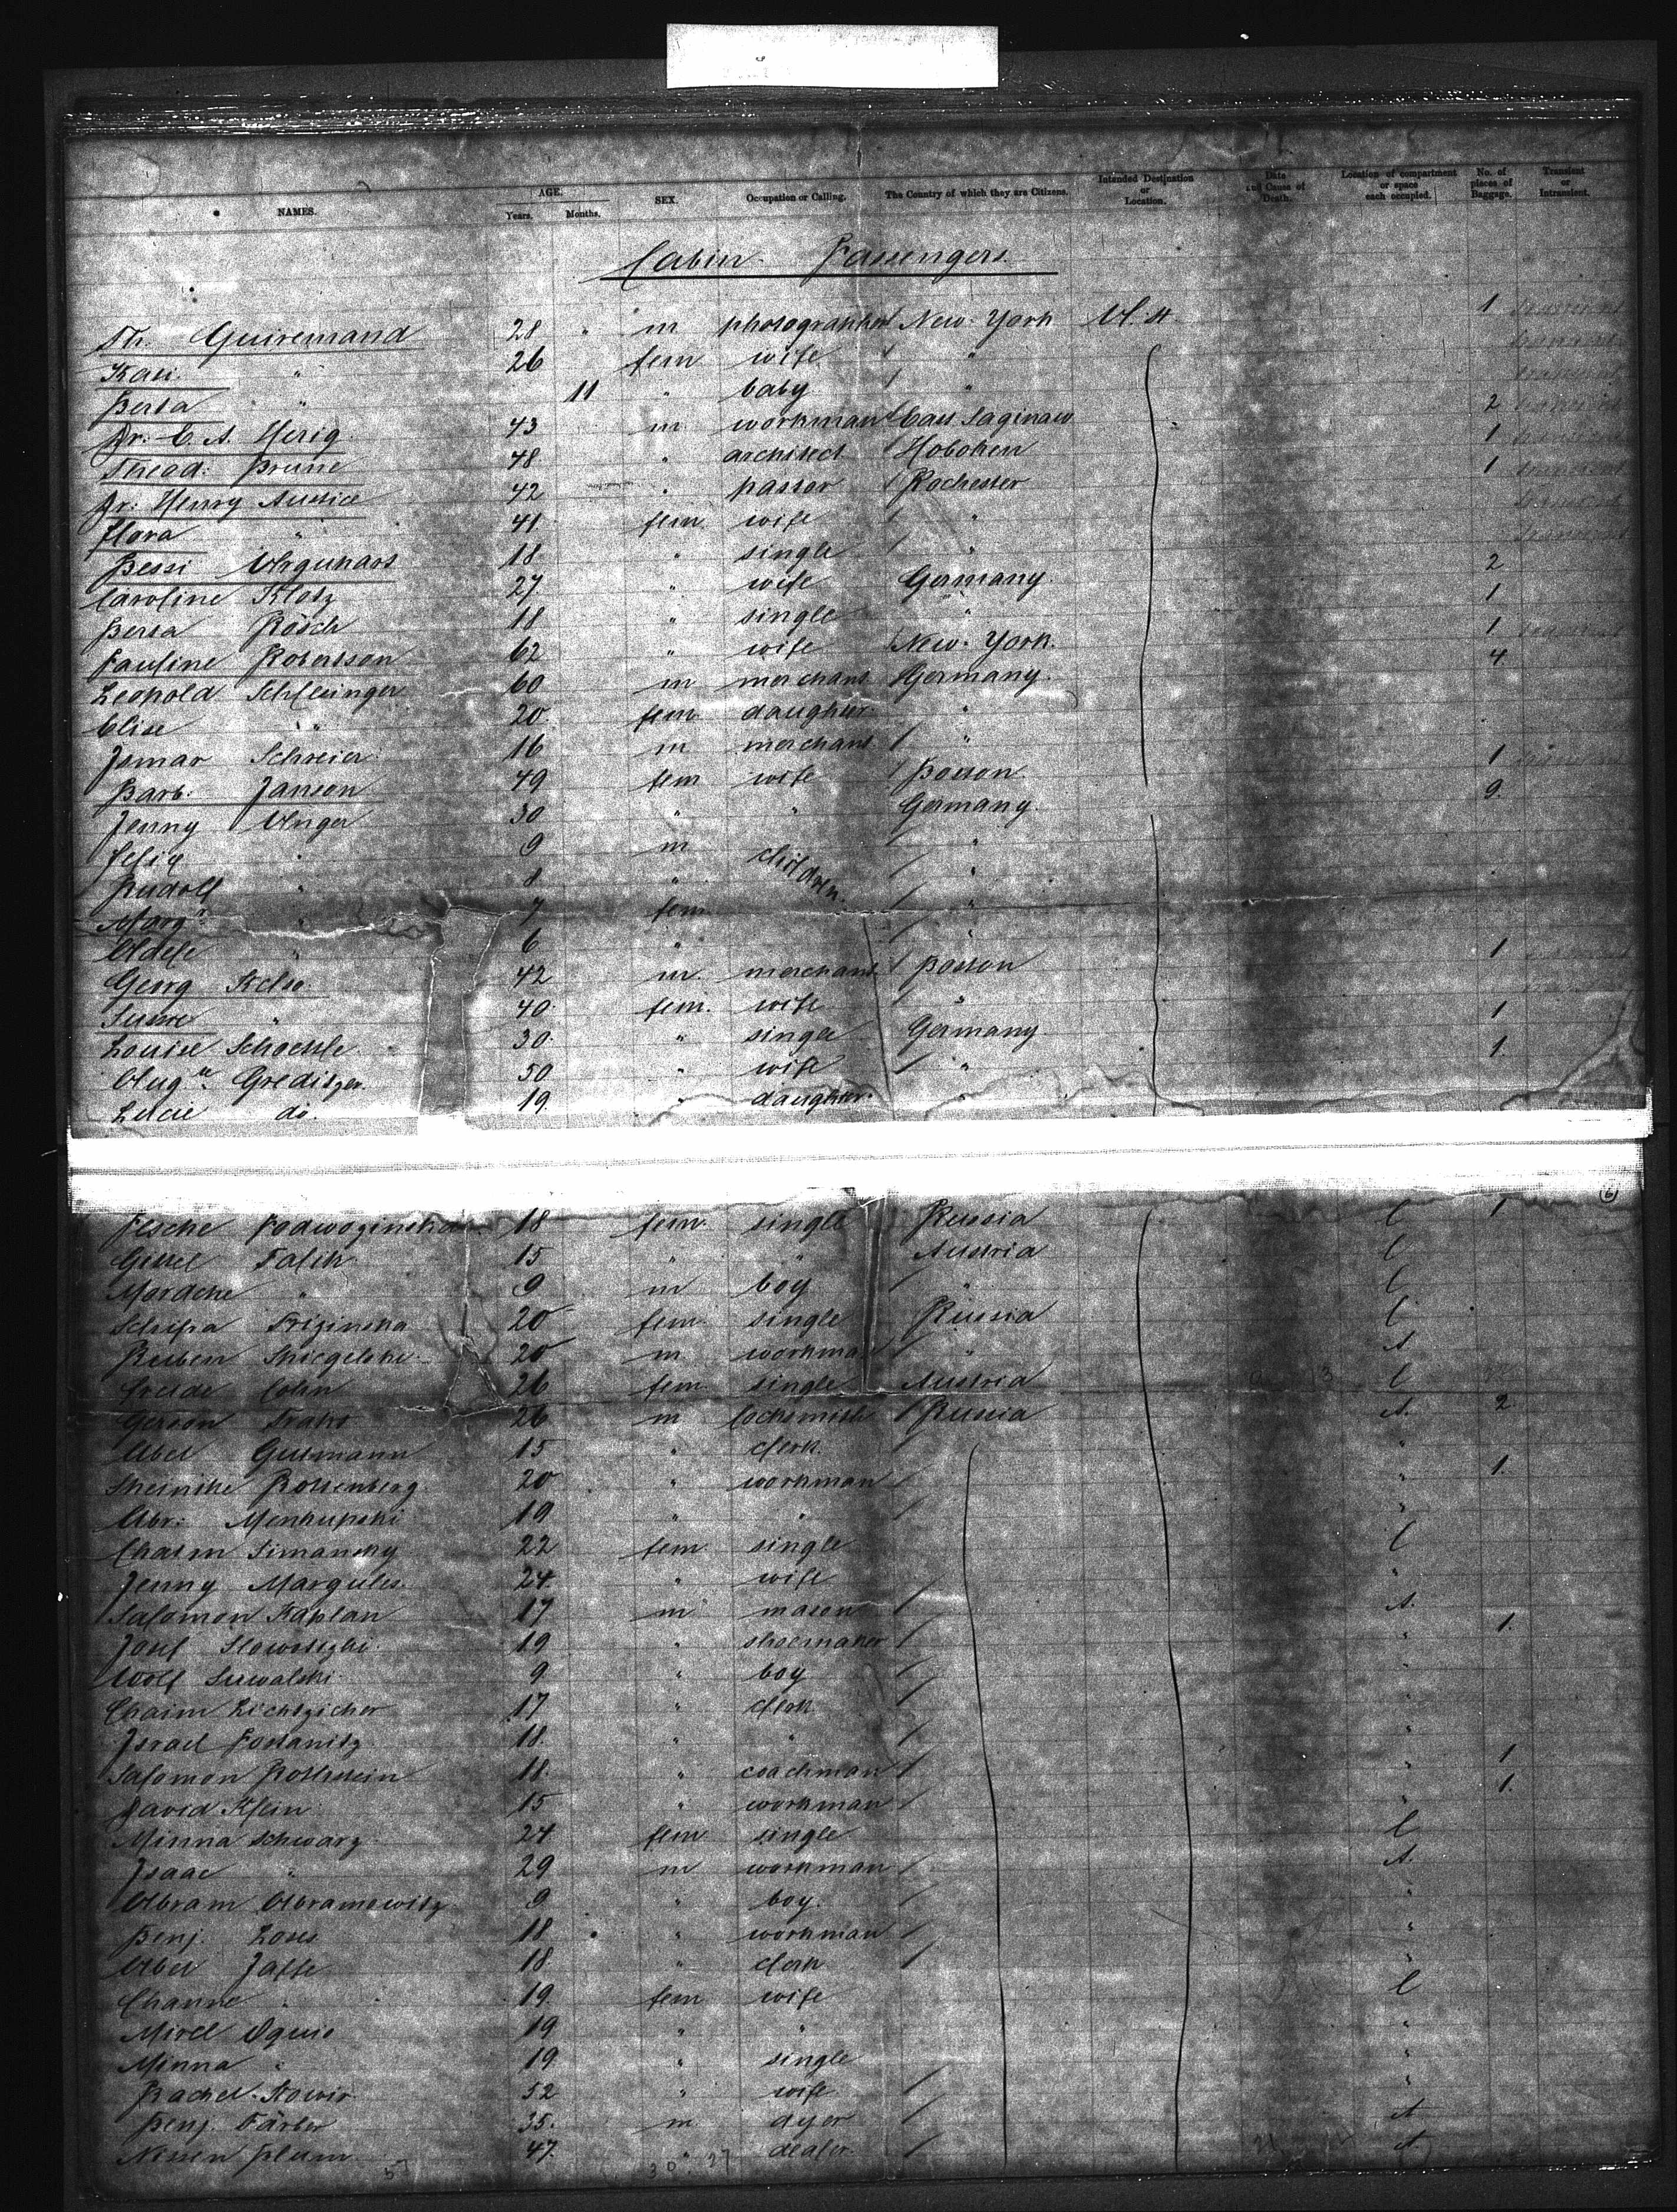 NAMES. AGE. Years. Months. SEX. Occupation or Calling. The Country of which they are Citizens. Intended Destination or Location. Date and Cause of Death. Location of compartment or space each occupied. No. of pieces of Baggage. Transient or Intransient.
Cabin Passengers
Th. Guiremand 28 " m photographer New-York U.St. 1
" 26 fem wife "
Berta " " 11 " baby "
Dr. C. A. Herig 43 m workman East Saginaw 2
Theod. Prune 48 " architect Hoboken 1
Dr. Henry 42 " pastor Rochester 1
Flora " 41 fem wife "
Bessi Urquhart 18 " single "
Caroline Klotz 27 " wife Germany 2
Berta Rösch 18 " single " 1
Pauline Robertson 62 " wife New-York. 1
Leopold Schlesinger 60 m merchant Germany. 4
Elise " " 20 fem daughter "
Ismar Schreier 16 m merchant "
Barb. Janson 49 fem wife Boston 1
Jenny Unger 30 " " Germany. 9.
Felix " 9 m children. "
Rudolf " 8 " "
Marg. " 7 fem "
Adele " 6 " "
Georg Kelso 42 m. merchant Boston 1
" 40 fem. wife "
Louise Schoettle 30. " single Germany 1
Aug. Greditzer 50 " wife " 1.
Lucie do. 19. " daughter "
6
Pesche Podwoginska 18 fem. single Russia C 1
Gittel Falik 15 " " Austria C
Mardche " 9 m boy " C
Schipa 20 fem. single Russia C
Ruben 20 m workman " A
Freide Cohn 26 fem single Austria C
Gerson 26 m locksmith Russia A. 2
Abel Gutmann 15 " clerk "
Rottenberg 20 " workman " 1.
Abr. Menkupski 19 " " "
Simansky 22 fem single C
Jenny Margulies 24. " wife "
Salomon Kaplan 17 m mason A.
Josef 19 " shoemaker " 1.
Wolf Suwalski 9 " boy "
Chaim Lichtzicher 17 " clerk "
Israel Postanitz 18. " " "
Salomon Rothstein 18. " coachman " 1
David Klein 15 " workman " 1.
Minna Schwarz 24 fem single C
Isaac " 29 m workman A.
Abram Abramowitz 9 " boy. "
Benj. 18 " workman "
Abel Jaffe 18 " clerk "
Channe " 19. fem wife C
Mirel 19 " " "
Minna " 19 " single "
Rachel 52 " wife "
Benj. Färber 35. m dyer A
Nissen Plum 47. " dealer A